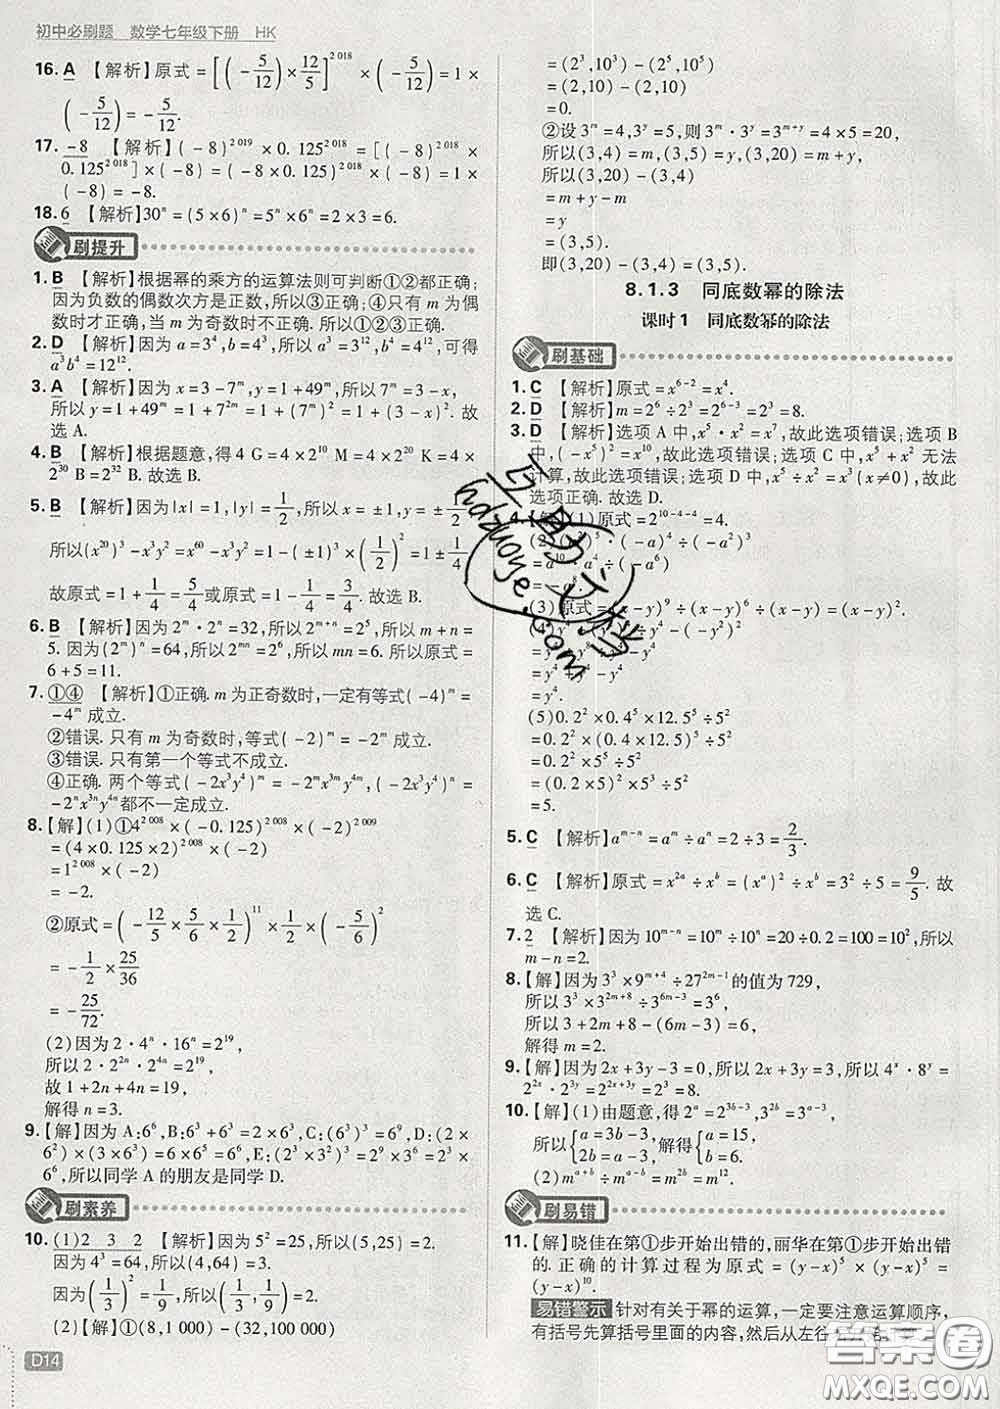 初中必刷题 数学七年级下册 HK
16. A 【解析】原式=[(-5/12)×12/5]^2 018×(-5/12)=1×
(-5/12)=-5/12.
17. -8 【解析】(-8)^2 019×0.125^2 018=[(-8)^2 018×
0.125^2 018]×(-8)=(-8×0.125)^2 018×(-8)=1×
(-8)=-8.
18. 6 【解析】30^n=(5×6)^n=5^n×6^n=2×3=6.
刷提升
1. B 【解析】根据幂的乘方的运算法则可判断①②都正确;
因为负数的偶数次方是正数,所以③正确;④只有 m 为偶
数时才正确,当 m 为奇数时不正确.故选 B.
2. D 【解析】因为 a=3^4,b=4^3,所以 a^3=3^12,b^4=4^12,可得
a^3b^4=12^12.
3. A 【解析】因为 x=3-7^m,y=1+49^m,所以 7^m=3-x,
所以 y=1+49^m=1+7^2m=1+(7^m)^2=1+(3-x)^2. 故
选 A.
4. B 【解析】根据题意,得 4 G=4×2^10 M=4×2^20 K=4×
2^30 B=2^32 B. 故选 B.
5. B 【解析】因为|x|=1,|y|=1/2,所以 x=±1,y=±1/2,
所以(x^20)^3-x^3y^2=x^60-x^3y^2=1-(±1)^3×(1/2)^2=1±1/4
故原式=1+1/4=5/4或原式=1-1/4=3/4.故选 B.
6. B 【解析】因为 2^m·2^n=32,所以 2^m+n=2^5,所以 m+n=
5. 因为(2^m)^n=64,所以 2^mn=2^6,所以 mn=6,所以原式=
6+5=11.
7. ①④ 【解析】①正确. m 为正奇数时,一定有等式(-4)^m=
-4^m 成立.
②错误. 只有 m 为奇数时,等式(-2)^m=-2^m 成立.
③错误. 只有第一个等式不成立.
④正确. 两个等式(-2x^3y^4)^m=-2^mx^3my^4m,(-2x^3y^4)^n=
-2^nx^3ny^4n都不一定成立.
8.【解】(1)①4^2 008×(-0.125)^2 008×(-2)^2 009
=(4×0.125×2)^2 008×(-2)
=1^2 008×(-2)
=-2.
②原式=(-12/5×5/6×1/2)^11×1/2×(-5/6)^2
=-1/2×25/36
=-25/72.
(2)因为 2·4^n·16^n=2^19,
所以 2·2^2n·2^4n=2^19,
故 1+2n+4n=19,
解得 n=3.
9.【解】因为 A:6^6,B:6^3+6^3=2×6^3,C:(6^3)^3=6^9,D:(2×
6^2)×(3×6^3)=6×6^5=6^6,E:[(2×3^2)^3]^2=2^6×3
6^6,所以同学 A 的朋友是同学 D.
刷素养
10. (1)2 3 2 【解析】因为 5^2=25,所以(5,25)=2.
因为 4^3=64,所以(4,64)=3.
因为(1/3)^2=1/9,所以(1/3,1/9)=2.
(2)【解】①(8,1 000)-(32,100 000)
=(2^3,10^3)-(2^5,10^5)
=(2,10)-(2,10)
=0.
②设 3^m=4,3^y=5,则 3^m·3^y=3^m+y=4×5=20,
所以(3,4)=m,(3,5)=y,(3,20)=m+y,
所以(3,20)-(3,4)
=m+y-m
=y
=(3,5).
即(3,20)-(3,4)=(3,5).
8.1.3 同底数幂的除法
课时1 同底数幂的除法
刷基础
1. C 【解析】原式=x^6-2=x^4.
2. D 【解析】m=2^6÷2^3=2^6-3=2^3=8.
3. D 【解析】选项 A 中,x^5·x^2=x^7,故此选项错误;选项 B
中,(-x^5)^2=x^10,故此选项错误;选项 C 中,x^5+x^2 无法
计算,故此选项错误;选项 D 中,x^5÷x^2=x^3(x≠0),故此
选项正确.故选 D.
(1)原式=2^10-4-4=4.
·(-a)^4÷(-a^2)^3
=a^10
=-a
(3)原式=(x-y)^9÷(x-y)^6÷(x-y)=(x-y)^2.
=y^4.
(5)0.2^2×0.4^5×12.5^5÷5^2
=0.2^2×(0.4×12.5)^5÷5^2
=0.2^2×5^5÷5^2
=(0.2×5)^2×5
=5.
5. C 【解析】a^m-n=a^m÷a^n=2÷3=2/3.
6. C 【解析】原式=x^2a÷x^b=(x^a)^2÷x^b=3^2÷5=9/5.故
选 C.
7. 2 【解析】因为 10^m-n=10^m÷10^n=20÷0.2=100=10^2,所以
m-n=2.
8.【解】因为 3^3×9^m+4÷27^2m-1的值为 729,
所以 3^3×3^2m+8÷3^6m-3=3^6,
所以 3+2m+8-(6m-3)=6,
解得 m=2.
9.【解】因为 2x+3y-3=0,所以 2x+3y=3,所以 4^x·8^y=
2^2x·2^3y=2^2x+3y=2^3=8.
10.【解】(1)由题意,得 2^a=2^3b-3,3^2b=3^a-3,
所以{a=3b-3,2b=a-3,解得{a=15,
(2)m^a+b÷m^a-b=m^2b=m^12.
刷易错
11.【解】晓佳在第①步开始出错的,丽华在第①步开始出错
的.正确的计算过程为原式=(y-x)^5×(y-x)^5=
(y-x)^10.
易错警示 针对有关于幂的运算,一定要注意运算顺序,
有括号先算括号里面的内容,然后从左往
D14
hdzuoye.com
答案圈
MXQE.COM